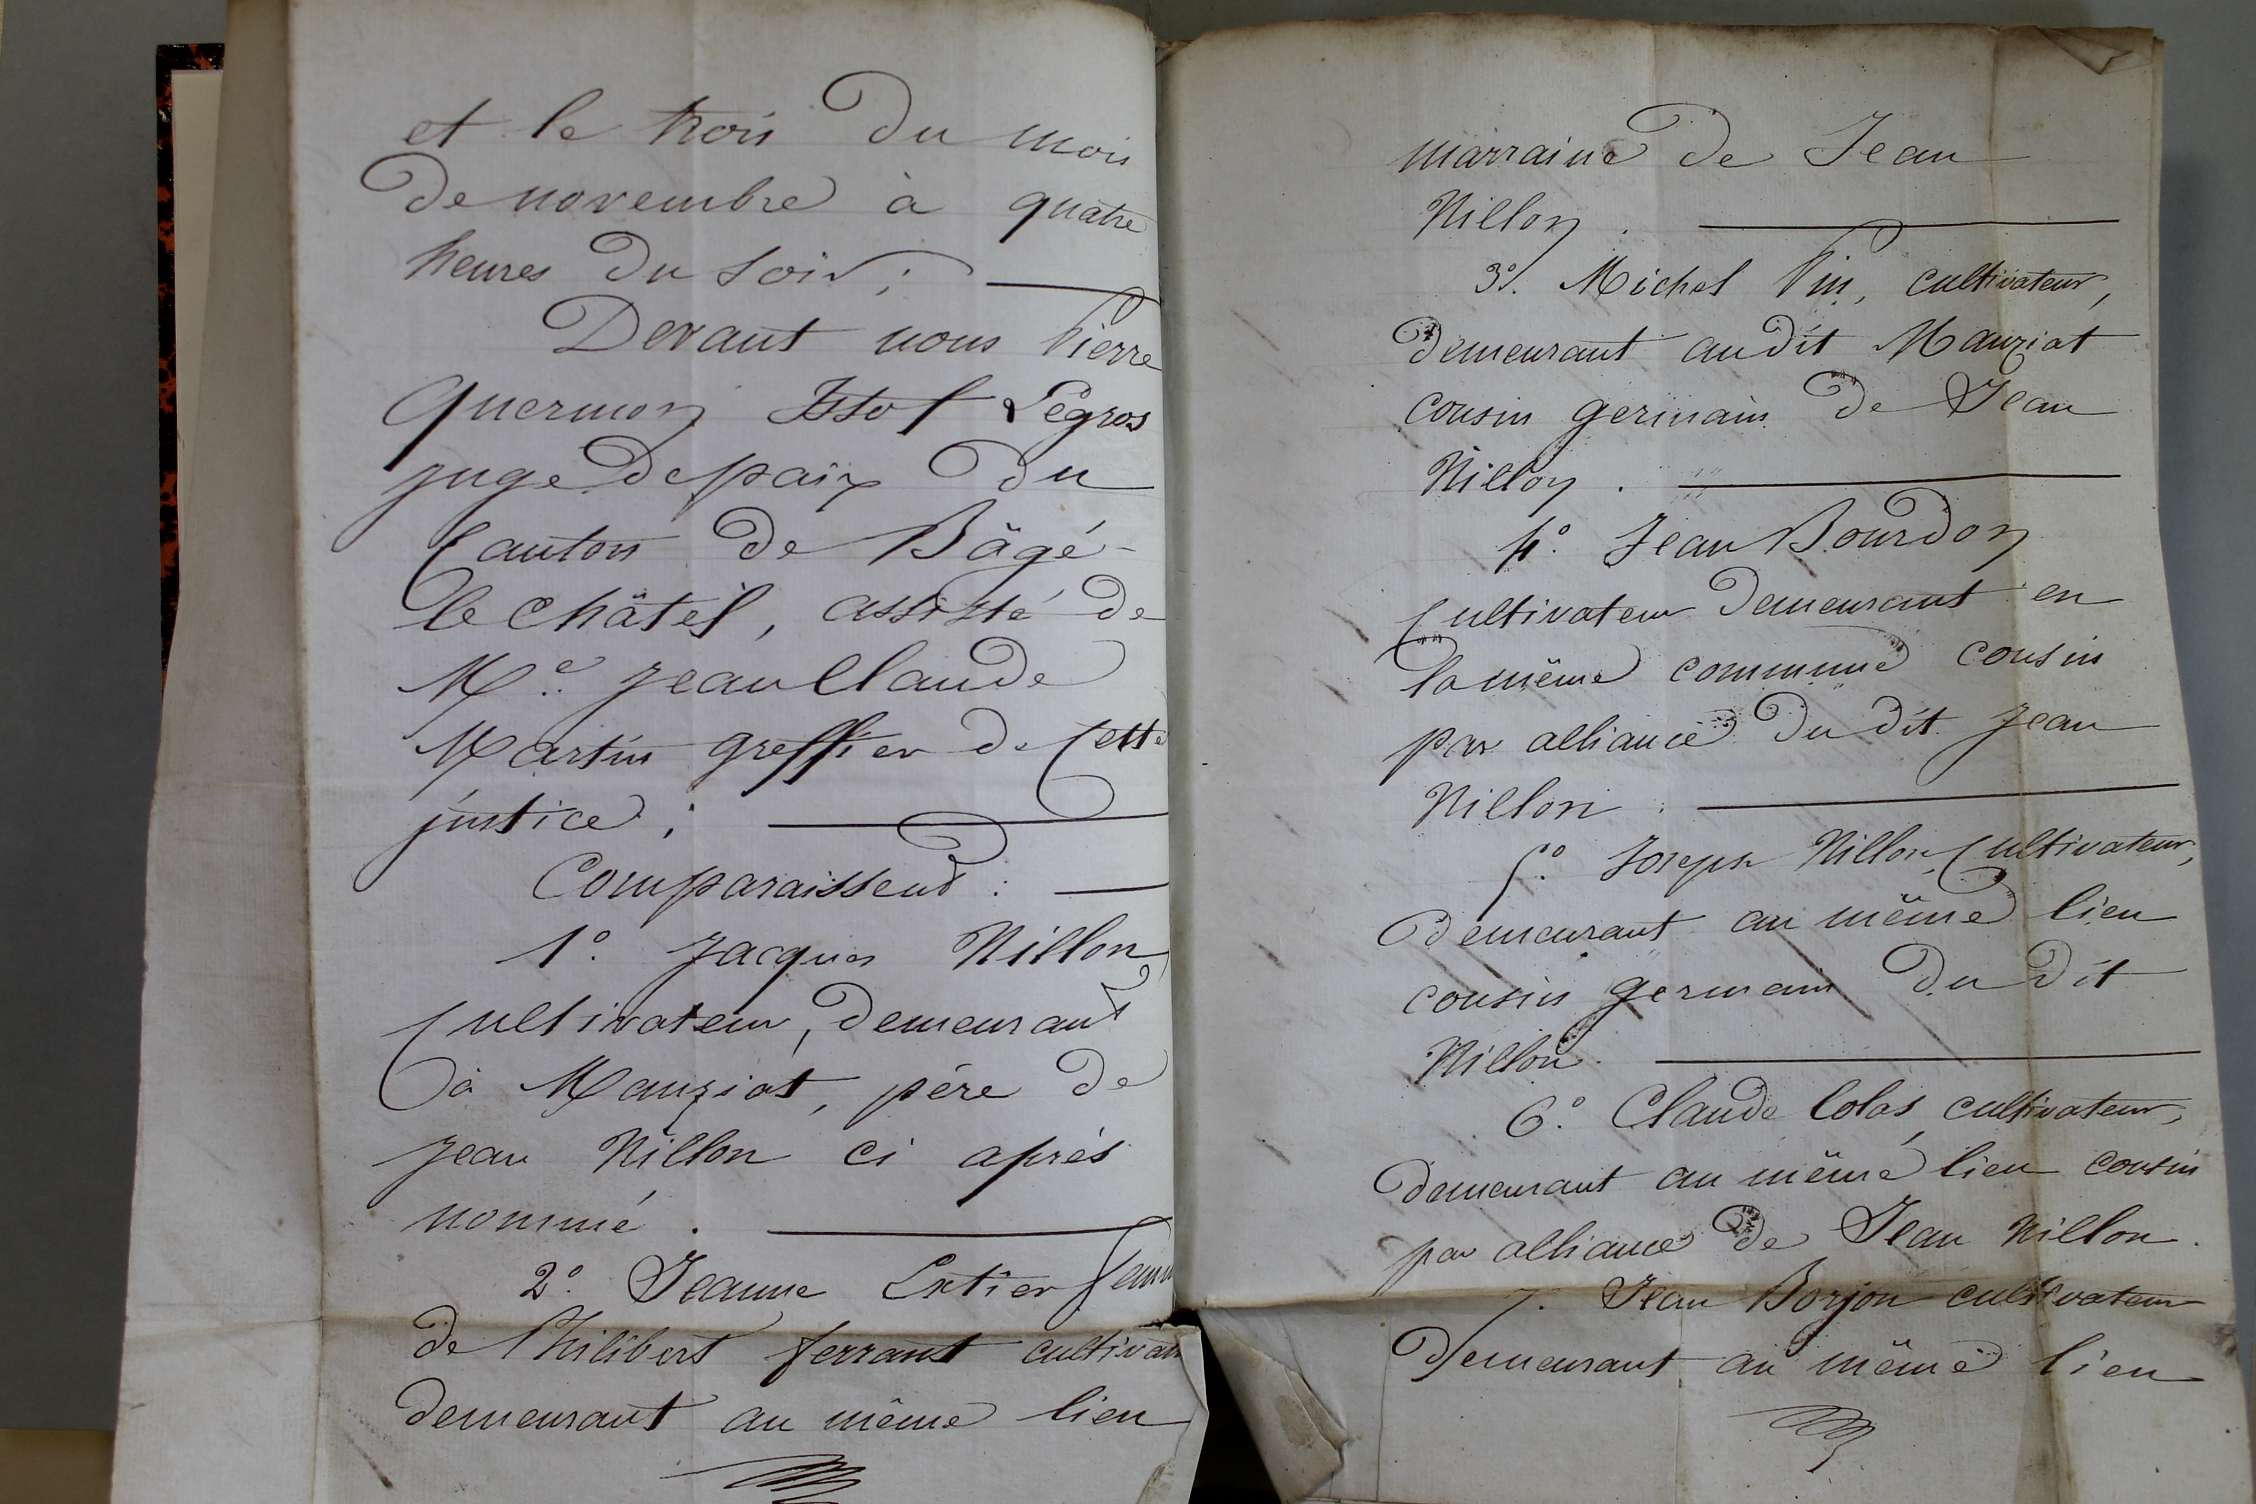 et le trois du mois
de novembre à quatre
heures du soir ;
Devant nous Pierre
Quermon Legros
juge de paix du
Canton de Bâgé-
le Châtel, assisté de
Me. Jean Claude
Martin greffier de Cette
justice ;
Comparaissent :
1o. Jacques Nillon
Cultivateur, demeurant
à Manziat, père de
Jean Nillon ci après
nommé .
2o. Jeanne
de Philibert ferrant
demeurant au même lieu
marraine de Jean
Nillon .
3o. Michel Pin, cultivateur,
demeurant audit Manziat
cousin germain de Jean
Nillon .
4o. Jean Bourdon
Cultivateur demeurant en
la même commune cousin
par alliance du dit Jean
Nillon .
5o. Joseph Nillon, Cultivateur,
demeurant au même lieu
cousin germain du dit
Nillon .
6o. Claude Colas, cultivateur,
demeurant au même lieu cousin
par alliance de Jean Nillon .
7. Jean Borjon cultivateur
demeurant au même lieu